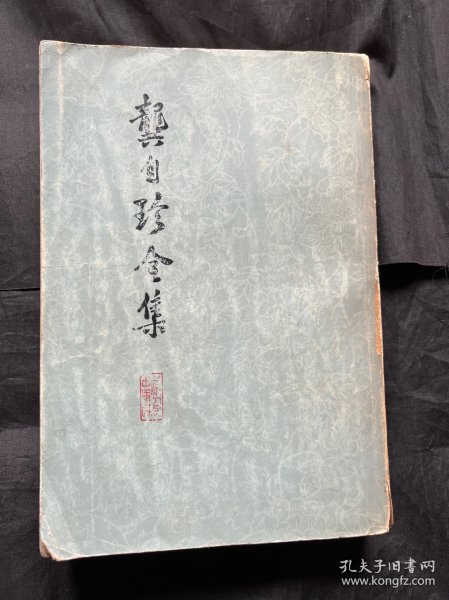 龔自珍全集
孔夫子旧书网
www.kongfz.com